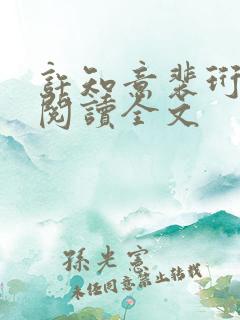 許知意裴珩
閱讀全文
孫光憲
未經同意禁止轉載